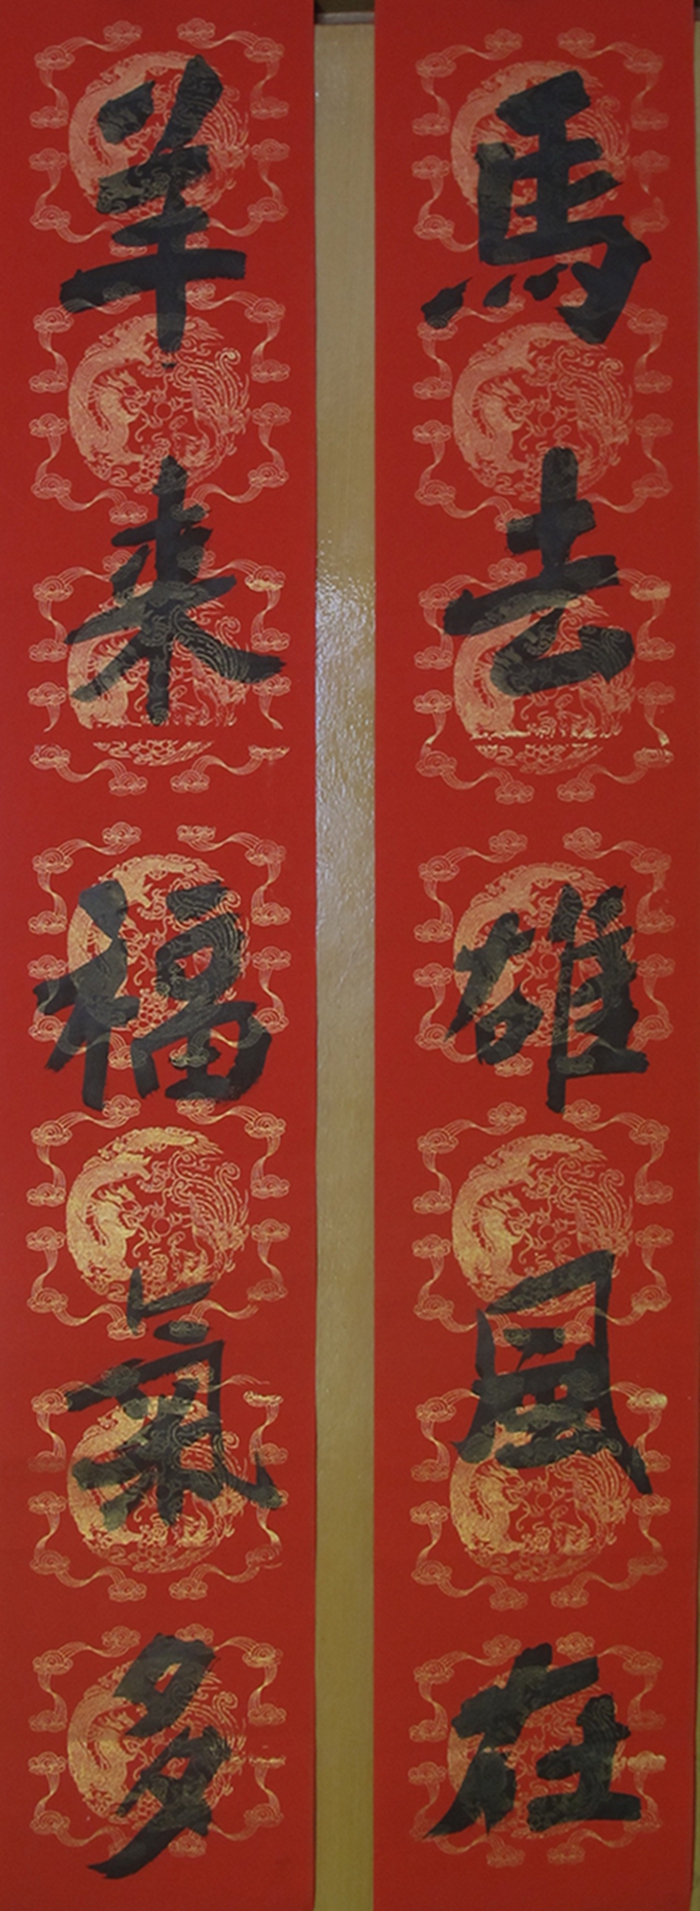 馬去雄风在
羊来福氣多